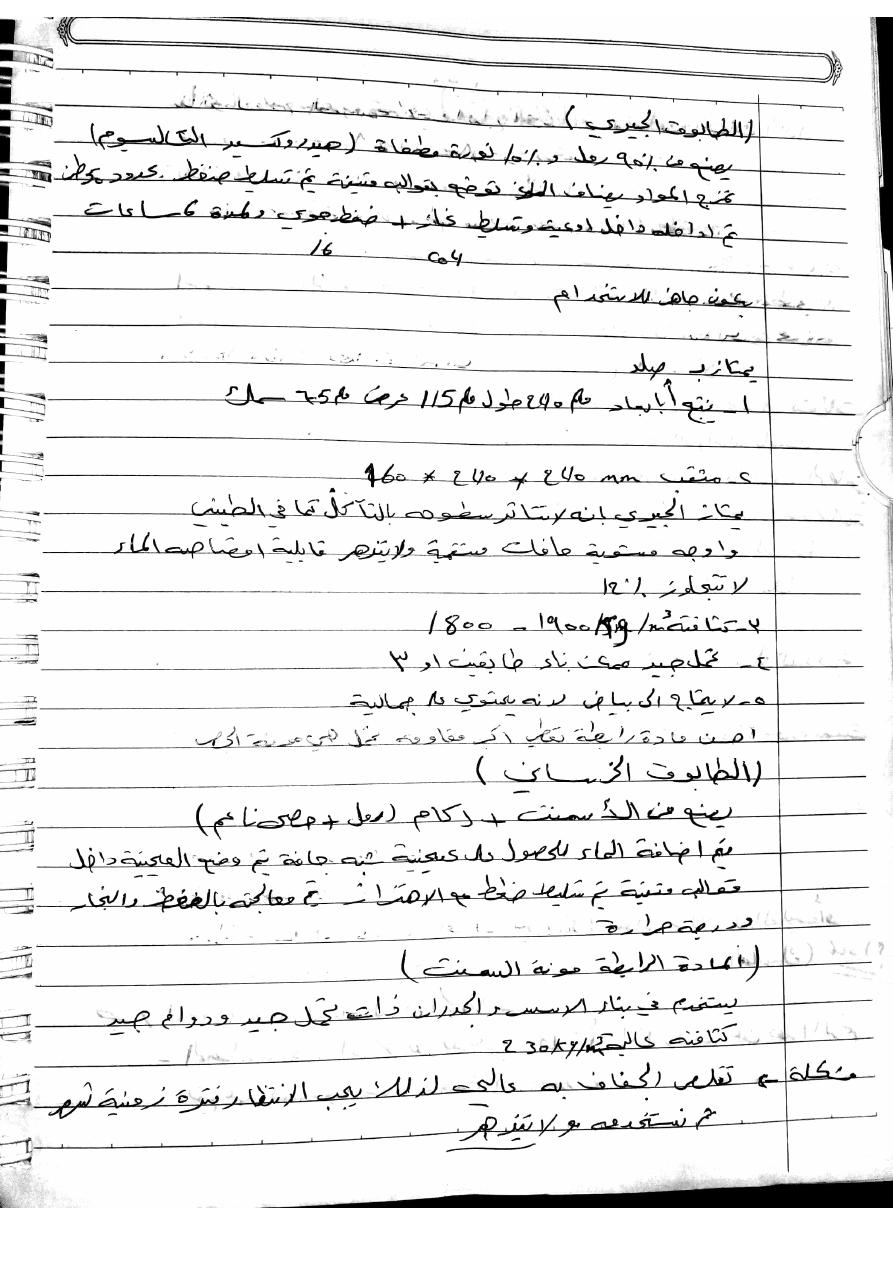 (الطابوق الجيري)
يصنع من 90% رمل و 10% نورة مطفاة (هيدروكسيد الكالسيوم)
تمزج المواد يضاف الماء توضع بقوالب متينة ثم تسليط ضغط بحدود
ثم ادخله داخل اوعية وتسليط بخار + ضغط جوي ولمدة ساعات
16
يكون جاهز للاستخدام
يمتاز ب صلد
1- ينتج أبابعاد 240 ملم طول 115 ملم عرض 65 ملم سمك
2- مثقب 240 mm * 240 * 160
يمتاز الجيري بانه لا تتاثر سطوحه بالتآكل كما في الطيني
واوجه مستوية حافات مستقيمة ولايتزهر قابلية امتصاصه الماء
لا تتجاوز 12%
3- كثافته 1800 - 1900 kg/m³
4- تحمل جيد ممكن بناء طابقين او 3
5- لا يحتاج الى بياض لانه يحتوي على جمالية
احسن مادة رابطة تعطي اكبر مقاومة تحمل هي مونة الجص
(الطابوق الخرساني)
يصنع من الأسمنت + ركام (رمل + حصى ناعم)
يتم اضافة الماء للحصول على عجينة شبه جافة ثم وضع العجينة داخل
قوالب متينة ثم تسليط ضغط مع الاهتزاز ثم معالجته بالضغط والبخار
ودرجة حرارة
(المادة الرابطة مونة السمنت)
يستخدم في بناء الاسس والجدران ذات تحمل جيد ودوام جيد
كثافته عالية 230kg/m³
مشكلة تقلص الجفاف به عالي لذلك يجب الانتظار فترة زمنية شهر
ثم نستخدمه ولا يتزهر